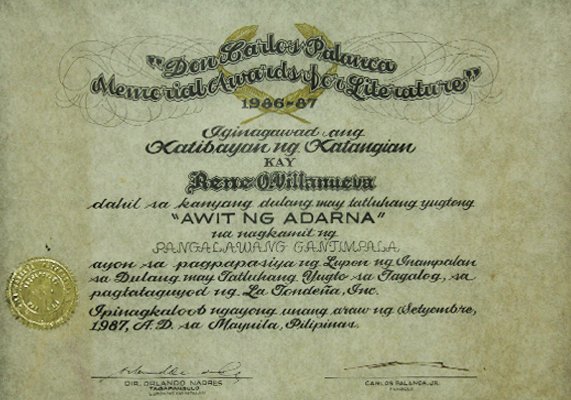 "Don Carlos Palanca
Memorial Awards for Literature"
1986-87
Iginagawad ang
Katibayan ng Katangian
KAY
Rene O. Villanueva
dahil sa kanyang dulang may tatluhang yugtong
"AWIT NG ADARNA"
na nagkamit ng
PANGALAWANG GANTIMPALA
ayon sa pagpapasiya ng Lupon ng Inampalan
sa Dulang may Tatluhang Yugto sa Tagalog, sa
pagtataguyod ng La Tondeña, Inc.
Ipinagkaloob ngayong unang araw ng Setyembre,
1987, A.D. sa Maynila, Pilipinas.
DIR. ORLANDO NADRES
TAGAPANGULO
CARLOS PALANCA, JR.